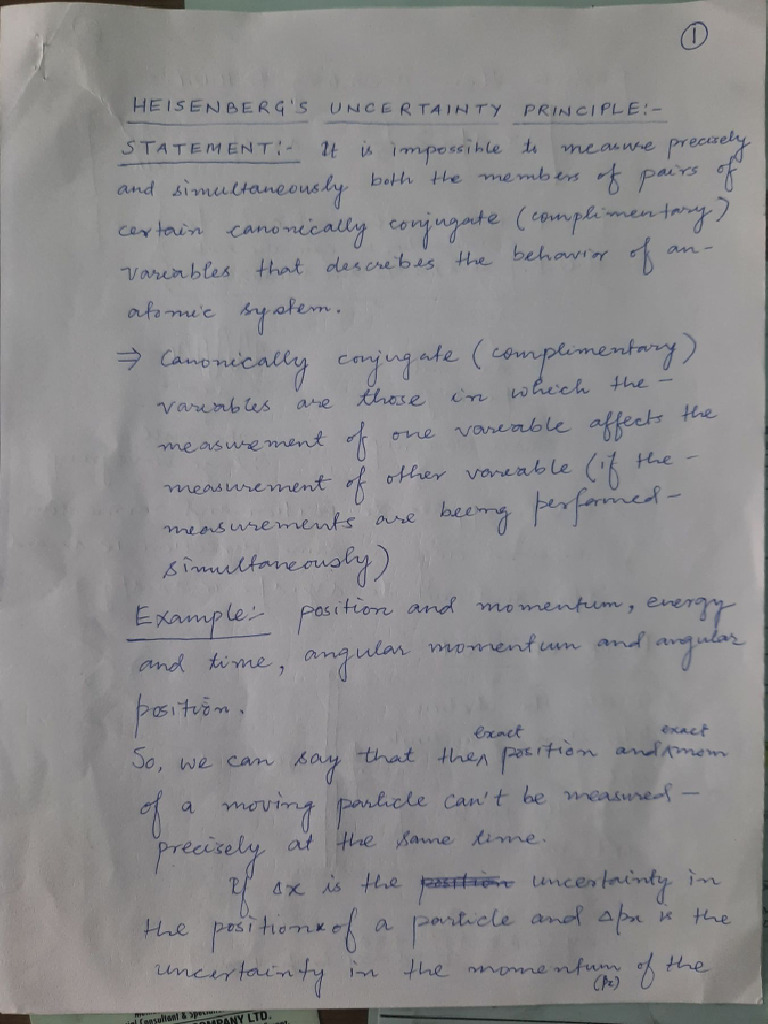 1
HEISENBERG'S UNCERTAINTY PRINCIPLE:-
STATEMENT:- It is impossible to measure precisely
and simultaneously both the members of pairs of
certain canonically conjugate (complimentary)
variables that describes the behavior of an-
atomic system.
⇒ Canonically conjugate (complimentary)
variables are those in which the-
measurement of one variable affects the
measurement of other variable (if the-
measurements are being performed-
simultaneously)
Example:- position and momentum, energy
and time, angular momentum and angular
position.
exact exact
So, we can say that the^ position and^mom
of a moving particle can't be measured-
precisely at the same time.
If Δx is the position uncertainty in
the position x of a particle and Δpx is the
uncertainty in the momentum of the
(Px)
COMPANY LTD.